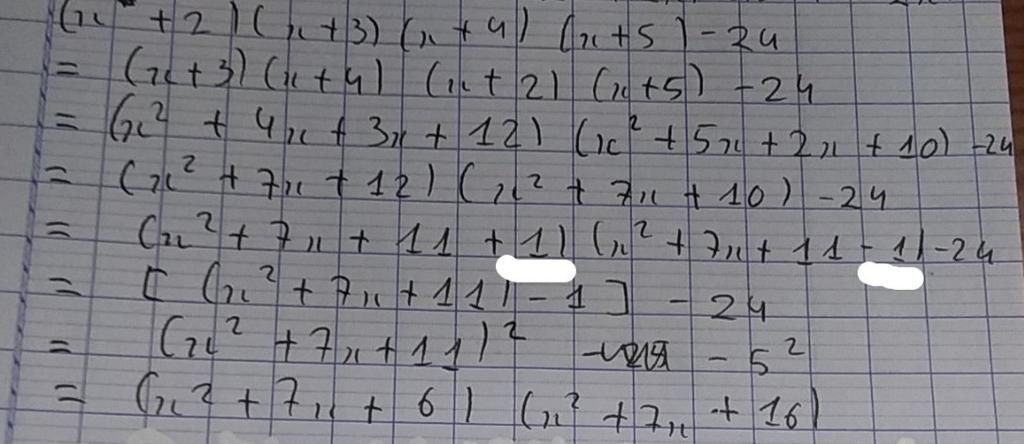 (x + 2) (x + 3) (x + 4) (x + 5) - 24
= (x + 3) (x + 4) (x + 2) (x + 5) - 24
= (x² + 4x + 3x + 12) (x² + 5x + 2x + 10) - 24
= (x² + 7x + 12) (x² + 7x + 10) - 24
= (x² + 7x + 11 + 1) (x² + 7x + 11 - 1) - 24
= [ (x² + 7x + 11) - 1 ] - 24
= (x² + 7x + 11)² - 5²
= (x² + 7x + 6) (x² + 7x + 16)